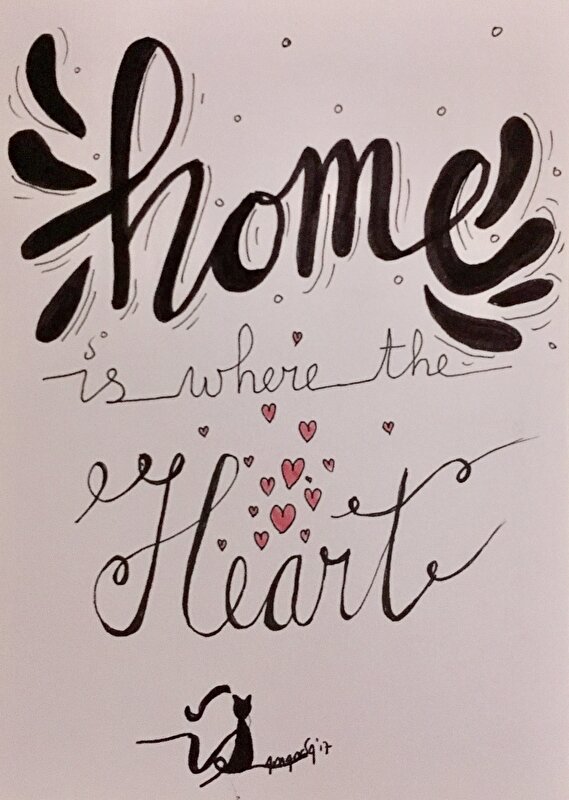 home
is where the
Heart
is